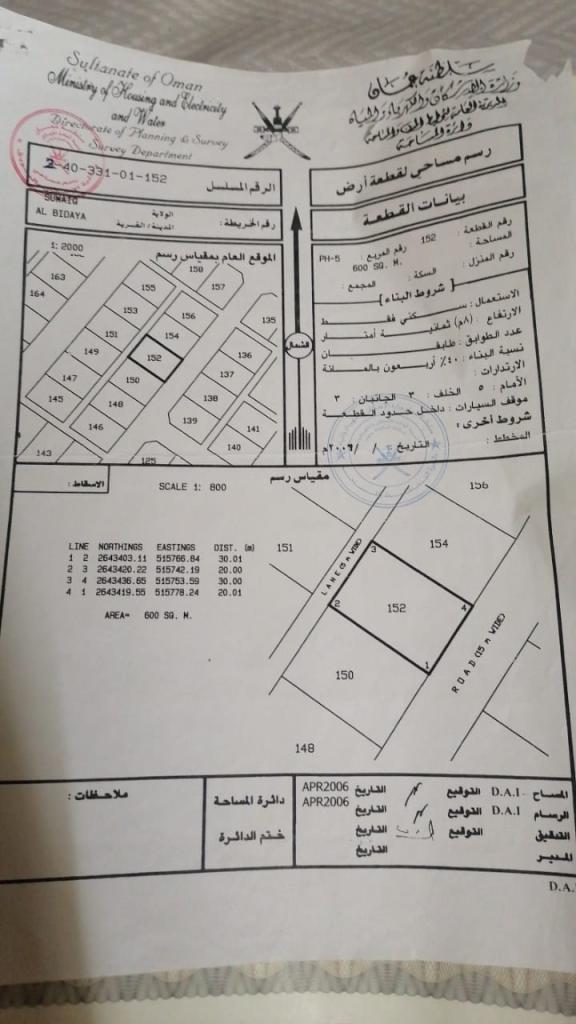 Sultanate of Oman
Ministry of Housing and Electricity
and Water
Directorate of Planning & Survey
Survey Department
سلطنة عمان
وزارة الإسكان والكهرباء والمياه
رسم مساحي لقطعة أرض
2-40-331-01-152
الرقم المسلسل
بيانات القطعة
SUWAIQ
الولاية
AL BIDAYA
المدينة/القرية
رقم الخريطة:
رقم القطعة: 152 رقم المربع: PH-5
المساحة: 600 SQ. M.
رقم المنزل: السكة: المجمع:
شروط البناء
الاستعمال: سكني فقط
الارتفاع: (٨م) ثمانية أمتار
عدد الطوابق: طابقان
نسبة البناء: ٤٠٪ أربعون بالمائة
الارتدارات:
الأمام: ٥ الخلف: ٣ الجانبان: ٣
موقف السيارات: داخل حدود القطعة
شروط أخرى:
المخطط:
التاريخ: / /٢٠٠٦م
1: 2000
الموقع العام بمقياس رسم
163
164
158
157
155
156
153
154
135
151
152
149
136
150
137
147
148
138
145
146
139
141
143
125
140
الشمال
الاسقاط:
SCALE 1: 800
مقياس رسم
LINE NORTHINGS EASTINGS DIST. (m)
1 2 2643403.11 515766.84 30.01
2 3 2643420.22 515742.19 20.00
3 4 2643436.65 515753.59 30.00
4 1 2643419.55 515778.24 20.01
AREA= 600 SQ. M.
156
151
154
LANE (5 m WIDE)
3
2
152
4
1
150
ROAD (15 m WIDE)
148
ملاحظات:
دائرة المساحة
ختم الدائرة
المساح D.A.I التوقيع التاريخ APR2006
الرسام D.A.I التوقيع التاريخ APR2006
التدقيق التوقيع التاريخ
المدير التاريخ
D.A.